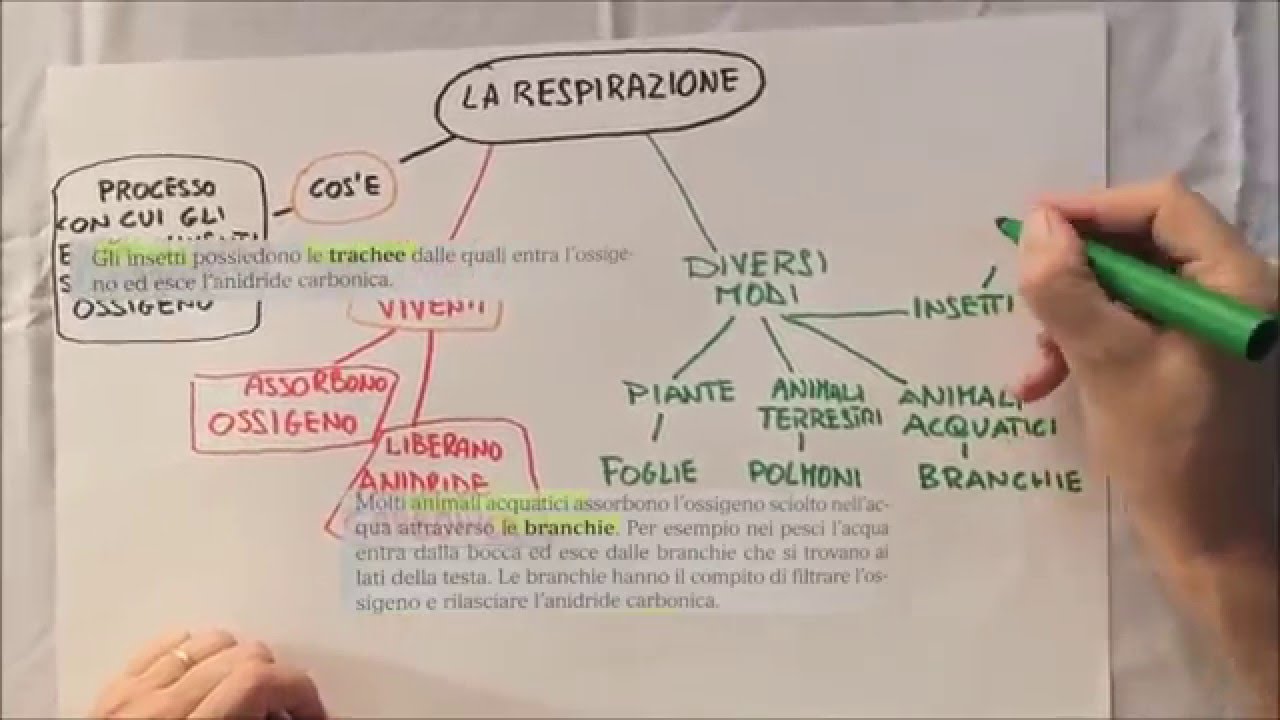 LA RESPIRAZIONE
COS'E
PROCESSO
CON CUI GLI
E
S
OSSIGENO
Gli insetti possiedono le trachee dalle quali entra l'ossige-
no ed esce l'anidride carbonica.
VIVENTI
ASSORBONO
OSSIGENO
LIBERANO
ANIDRIDE
DIVERSI
MODI
INSETTI
PIANTE
FOGLIE
ANIMALI
TERRESTRI
POLMONI
ANIMALI
ACQUATICI
BRANCHIE
Molti animali acquatici assorbono l'ossigeno sciolto nell'ac-
qua attraverso le branchie. Per esempio nei pesci l'acqua
entra dalla bocca ed esce dalle branchie che si trovano ai
lati della testa. Le branchie hanno il compito di filtrare l'os-
sigeno e rilasciare l'anidride carbonica.